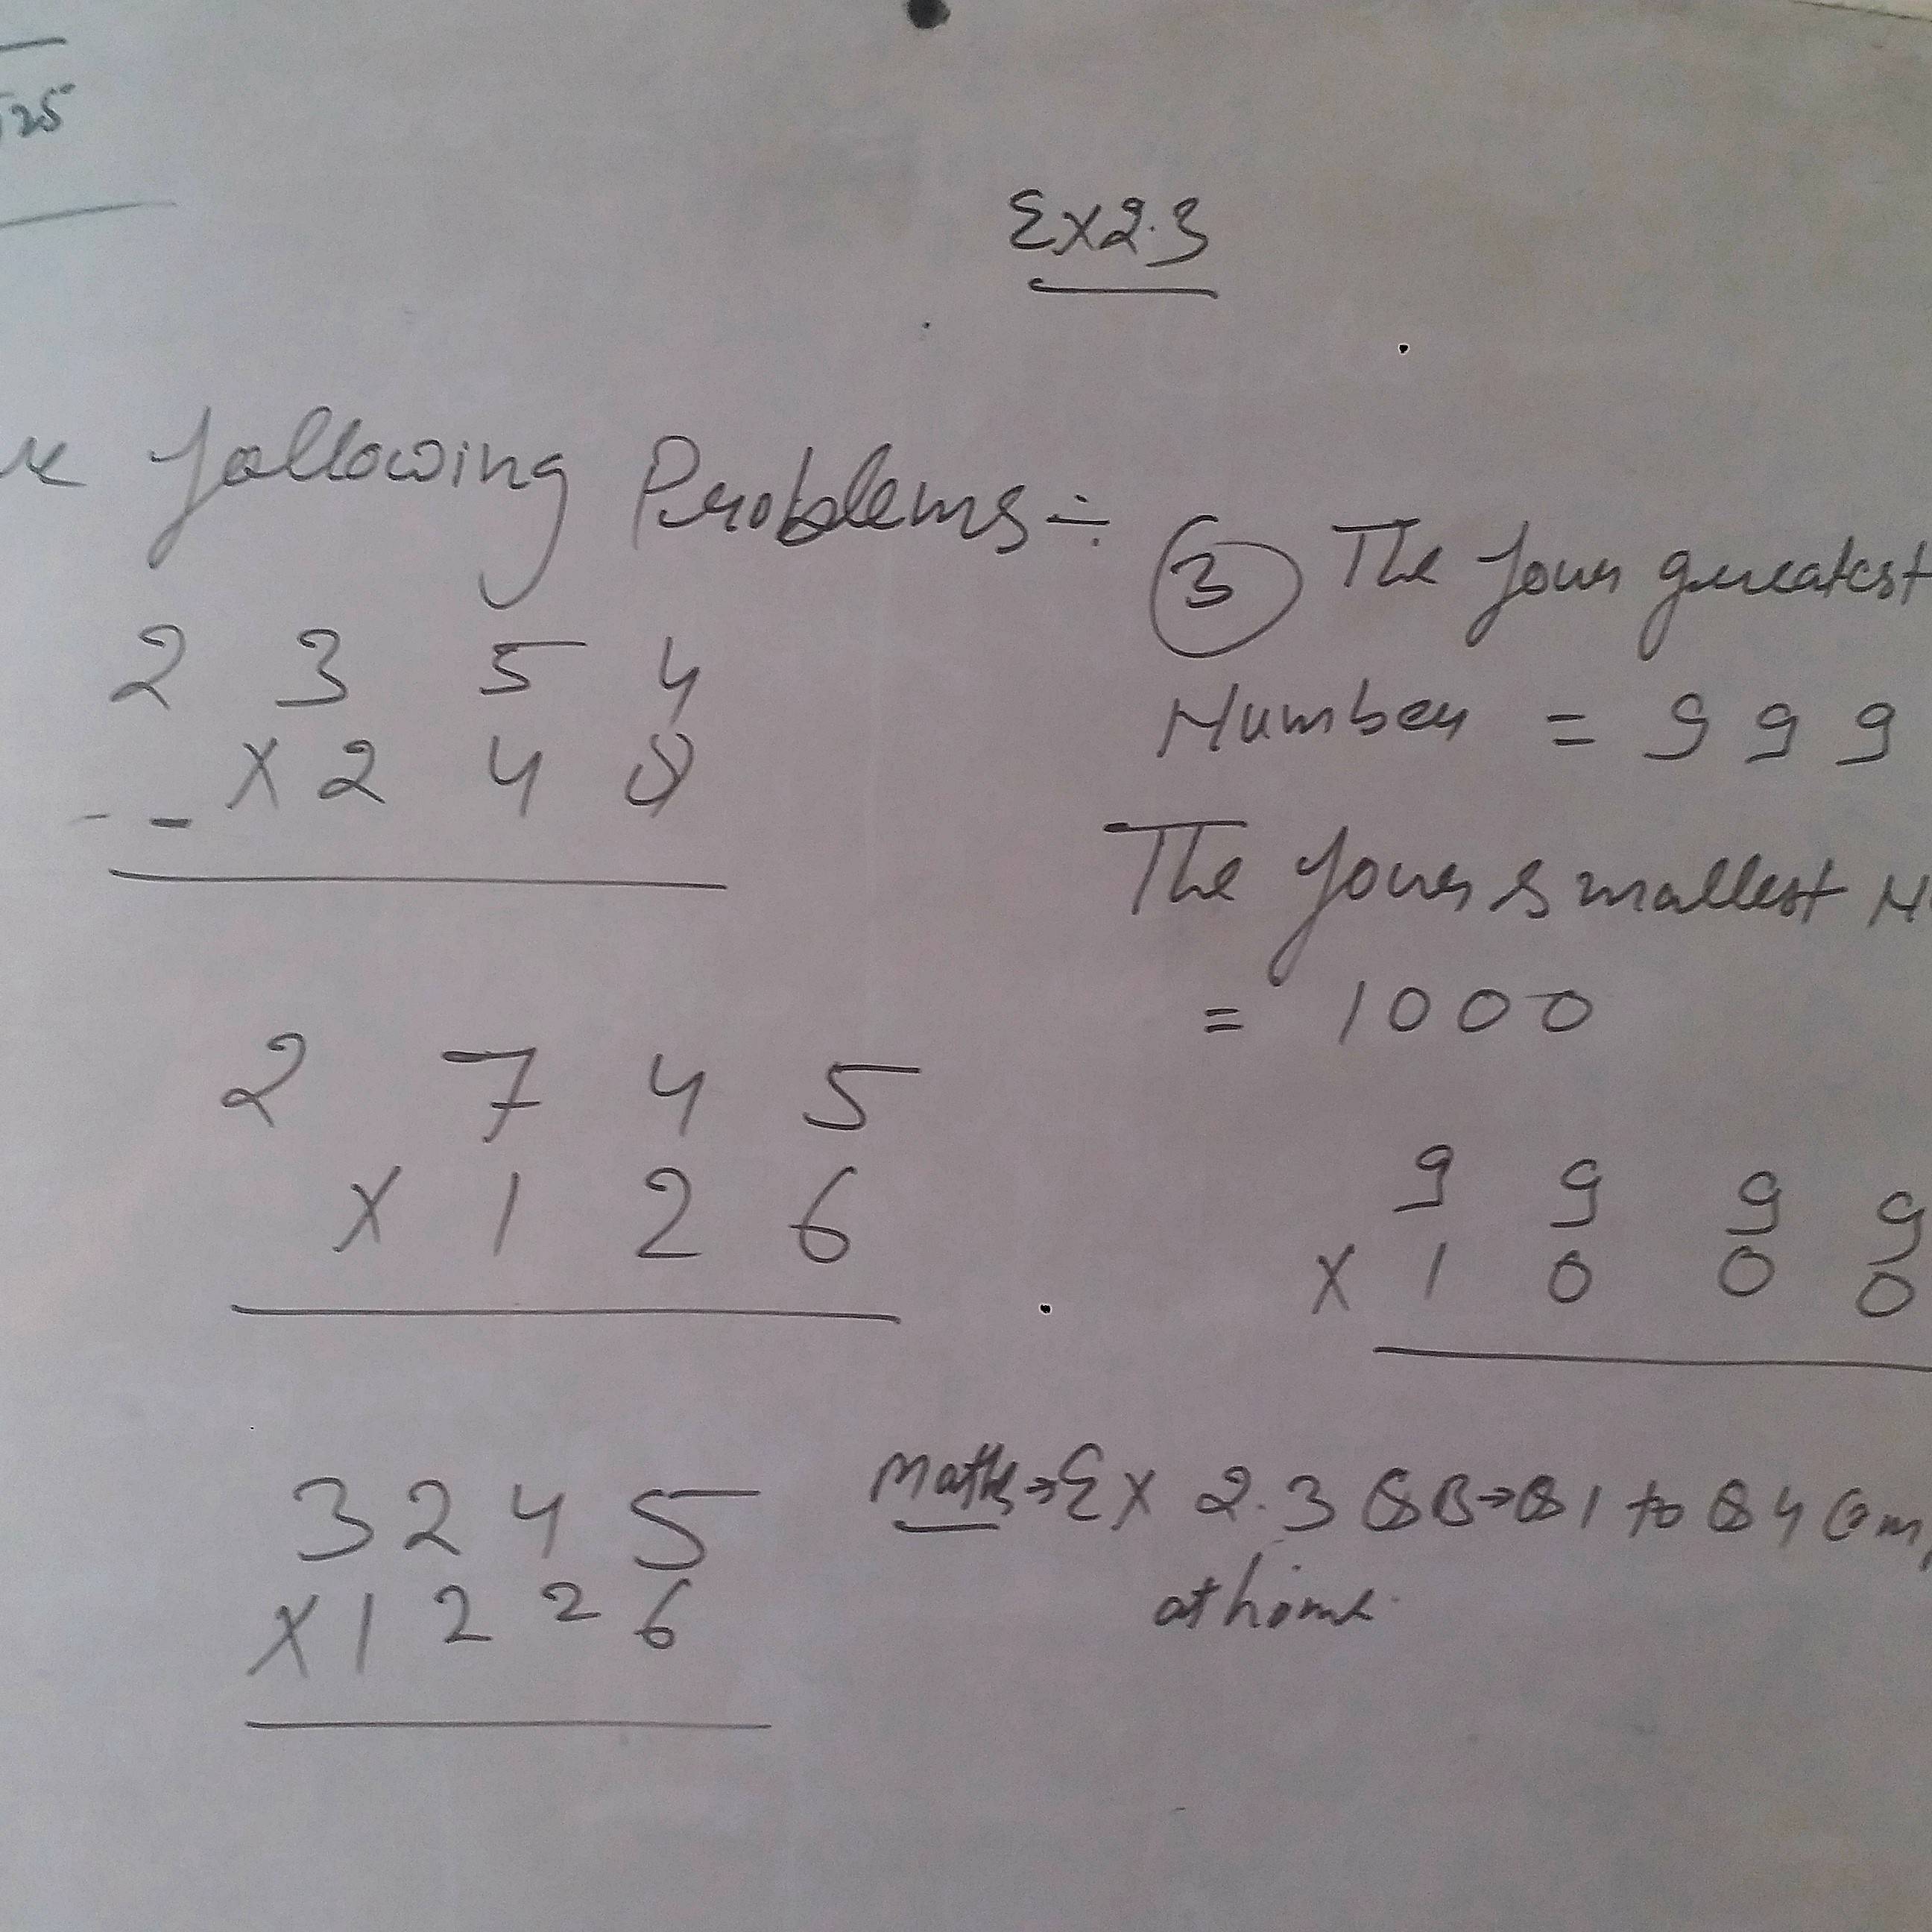 Ex2.3
following Problems ÷
2 3 5 4
x 2 4 8
2 7 4 5
x 1 2 6
3 2 4 5
x 1 2 2 6
③ The four greatest
Number = 9 9 9
The four smallest
= 1000
9 9 9 9
x 1 0 0 0
Math→Ex 2.3 QB→Q1 to Q4
at home.